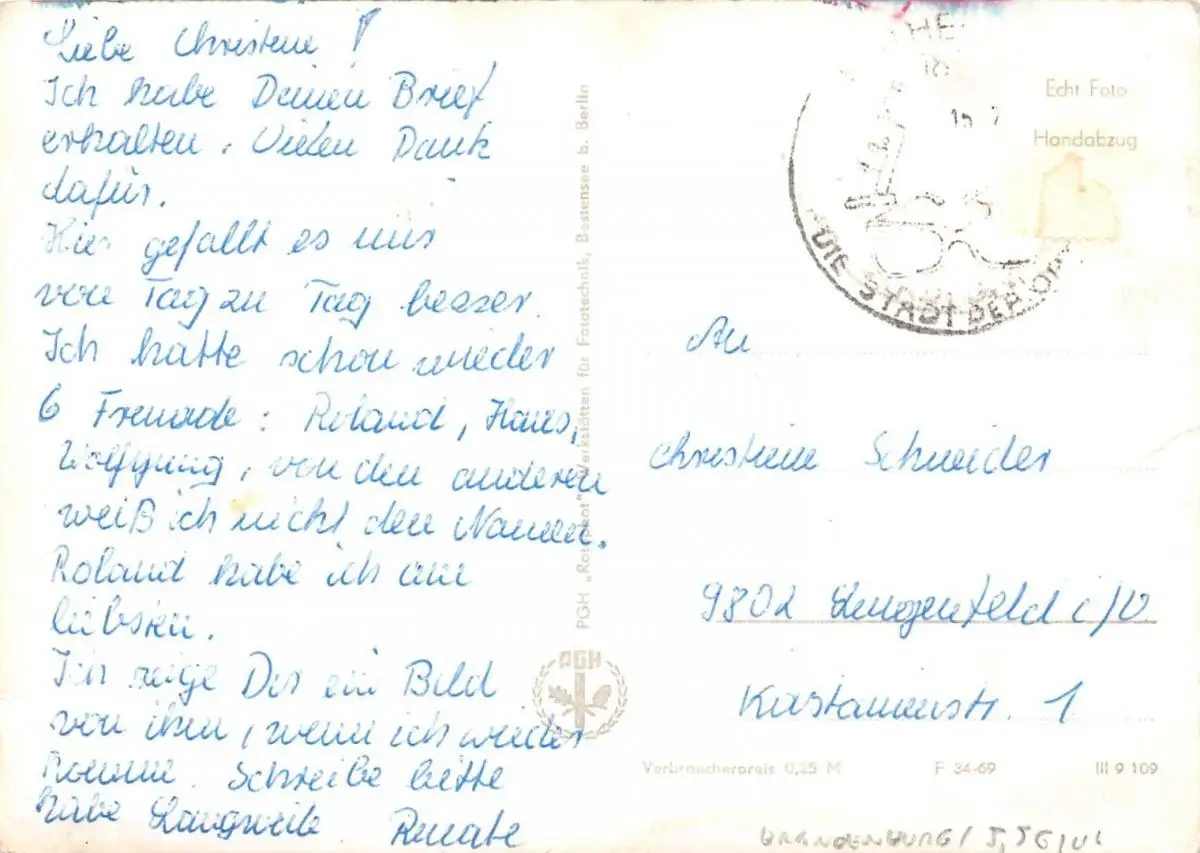 Liebe Christine!
Ich habe Deinen Brief
erhalten. Vielen Dank
dafür.
Hier gefällt es mir
von Tag zu Tag besser.
Ich hatte schon wieder
6 Freunde: Roland, Hans,
Wolfgang, von den anderen
weiß ich nicht den Namen.
Roland habe ich am
liebsten.
Ich zeige Dir ein Bild
von ihm, wenn ich wieder
komme. Schreibe bitte
habe Langweile. Renate
PGH „Rotophot" Werkstätten für Fototechnik, Bestensee b. Berlin
PGH
HE
18
15. 7
DIE STADT DER OP
Echt Foto
Handabzug
An
Christine Schneider
9802 Lengenfeld i/V
Kastanienstr. 1
Verbraucherpreis 0,25 M F 34-69 III 9 109
BRANDENBURG/